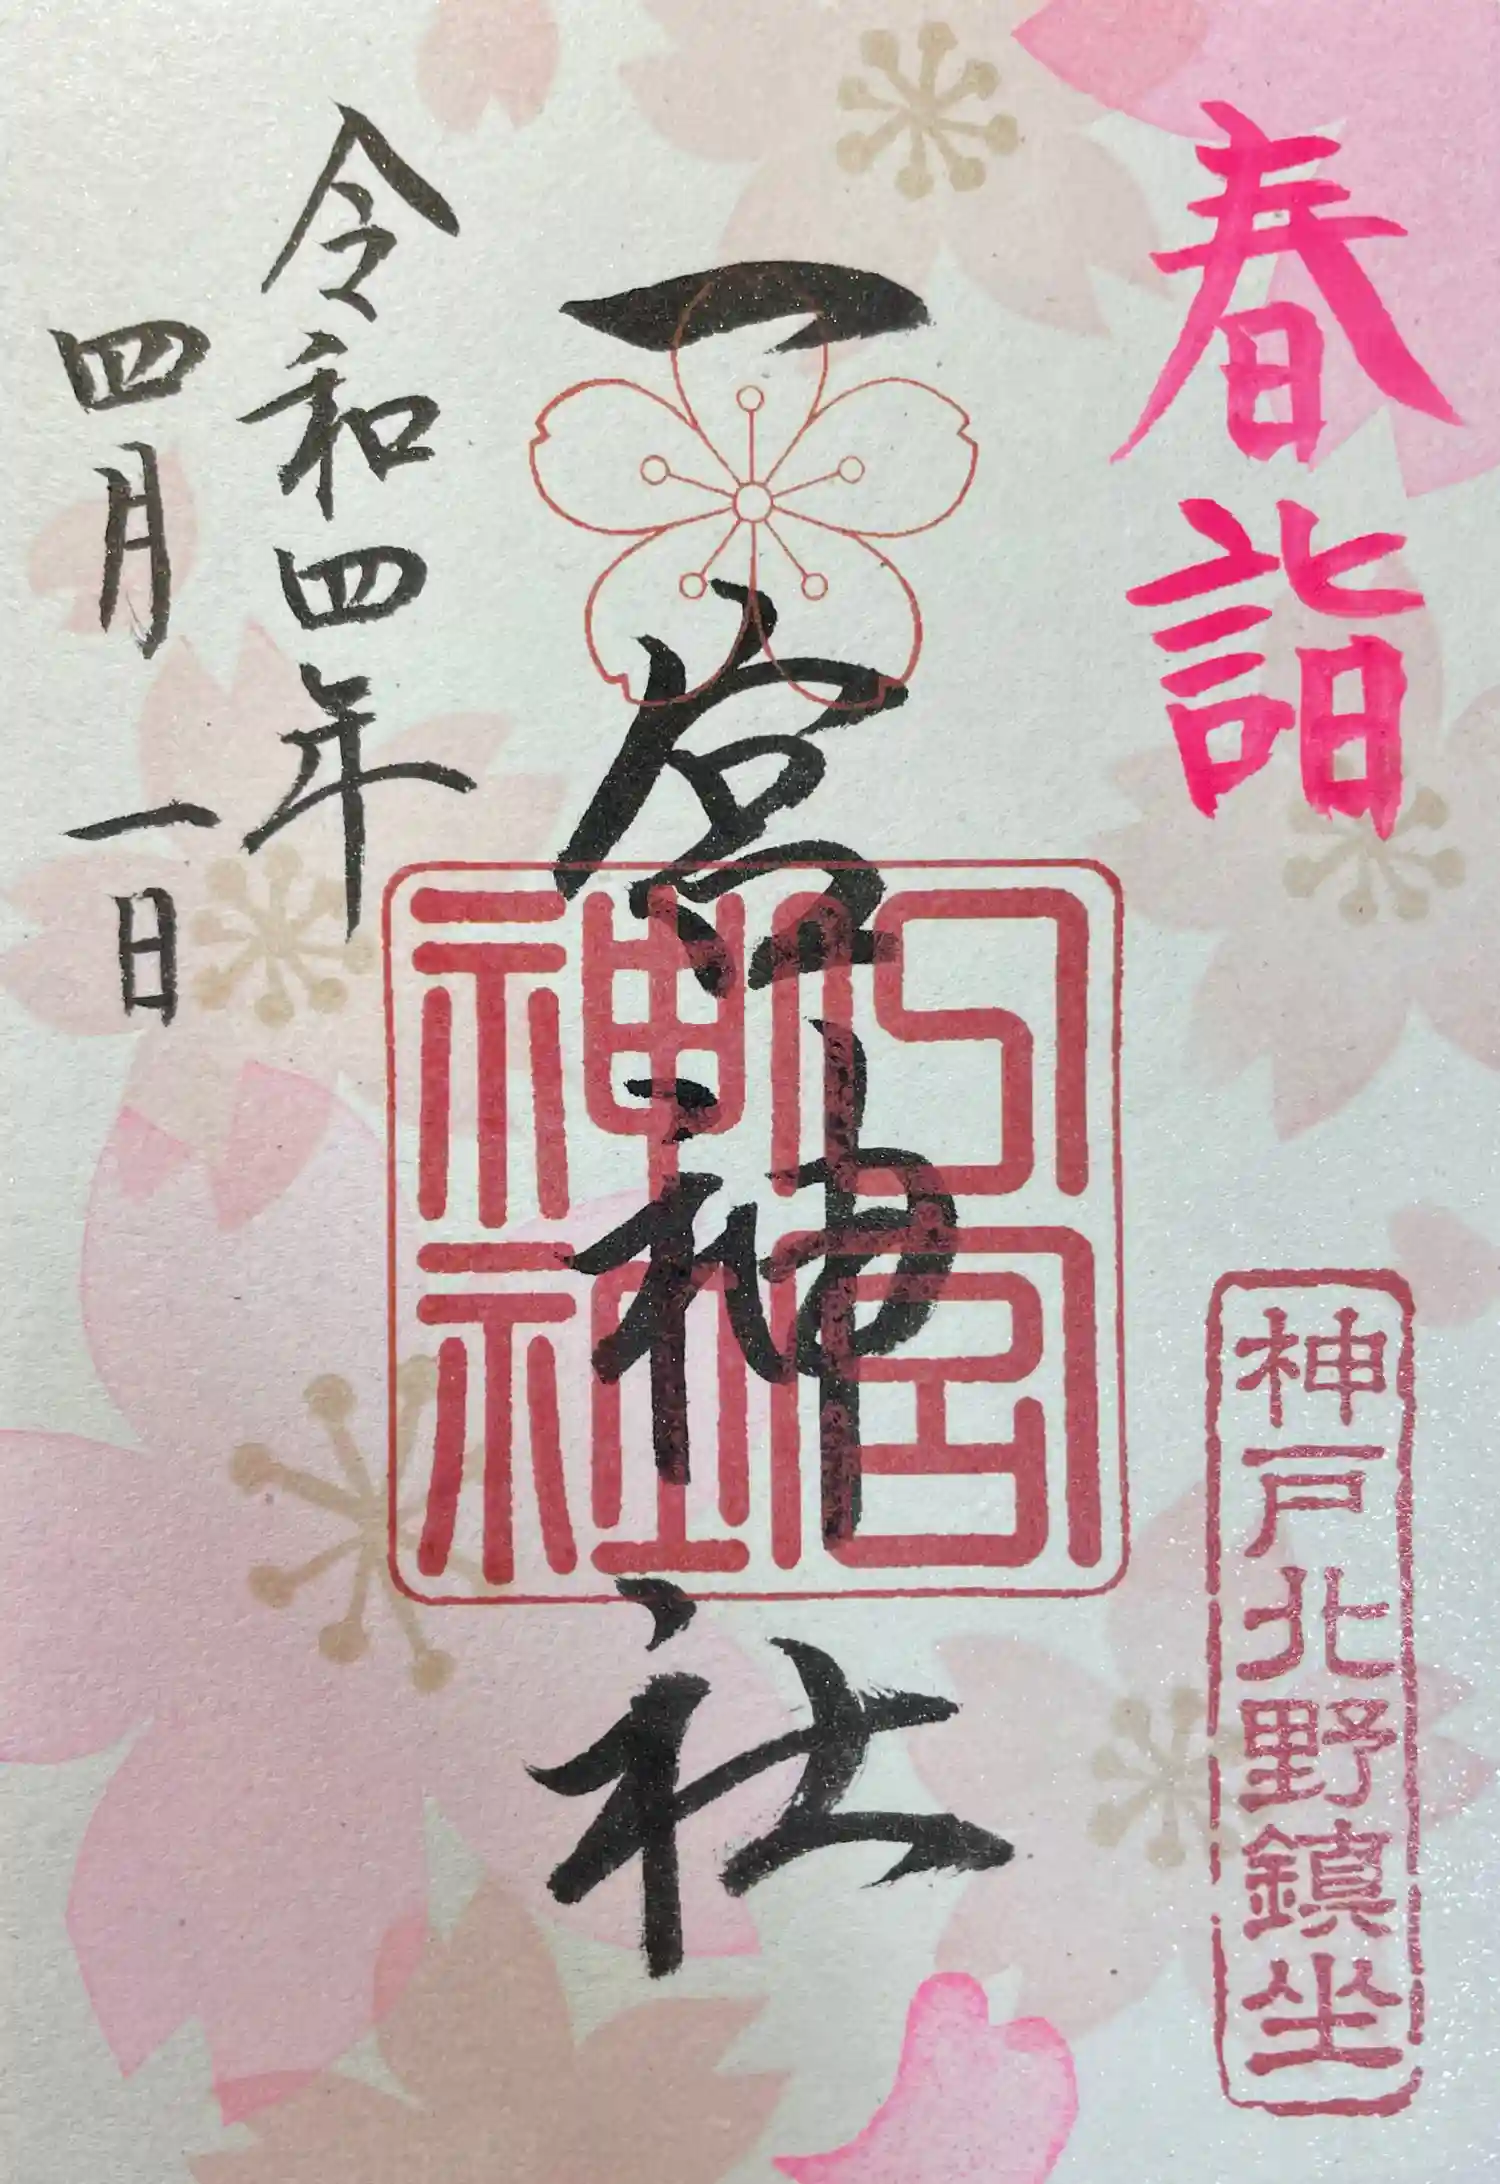 春詣
神戸北野鎮坐
一宮神社
宮
神社
令和四年
四月一日